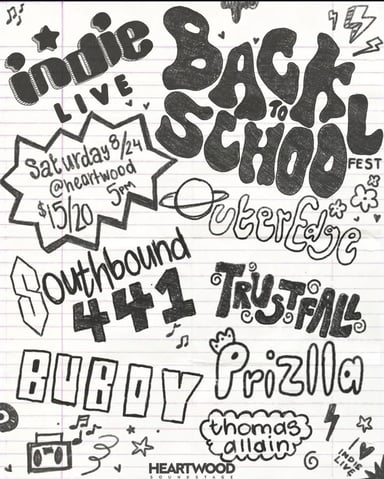 indie
LIVE
BACK
TO
SCHOOL
FEST
Saturday 8/24
@heartwood
5pm
$15/20
OuterEdge
Southbound
441
TRUSTFALL
BUBOY
Prizlla
thomas
allain
I ♥
INDIE
LIVE
HEARTWOOD
SOUNDSTAGE